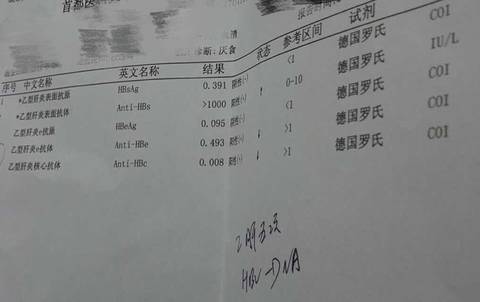 首都医
诊断: 厌食
序号 中文名称 英文名称 结果 状态 参考区间 试剂
1 *乙型肝炎表面抗原 HBsAg 0.391 阴性(-) <1 德国罗氏 COI
*乙型肝炎表面抗体 Anti-HBs >1000 阳性(+) ↑ 0-10 德国罗氏 IU/L
乙型肝炎e抗原 HBeAg 0.095 阴性(-) <1 德国罗氏 COI
乙型肝炎e抗体 Anti-HBe 0.493 阳性(+) ↓ >1 德国罗氏 COI
乙型肝炎核心抗体 Anti-HBc 0.008 阳性(+) ↓ >1 德国罗氏 COI
乙肝五项
HBV-DNA